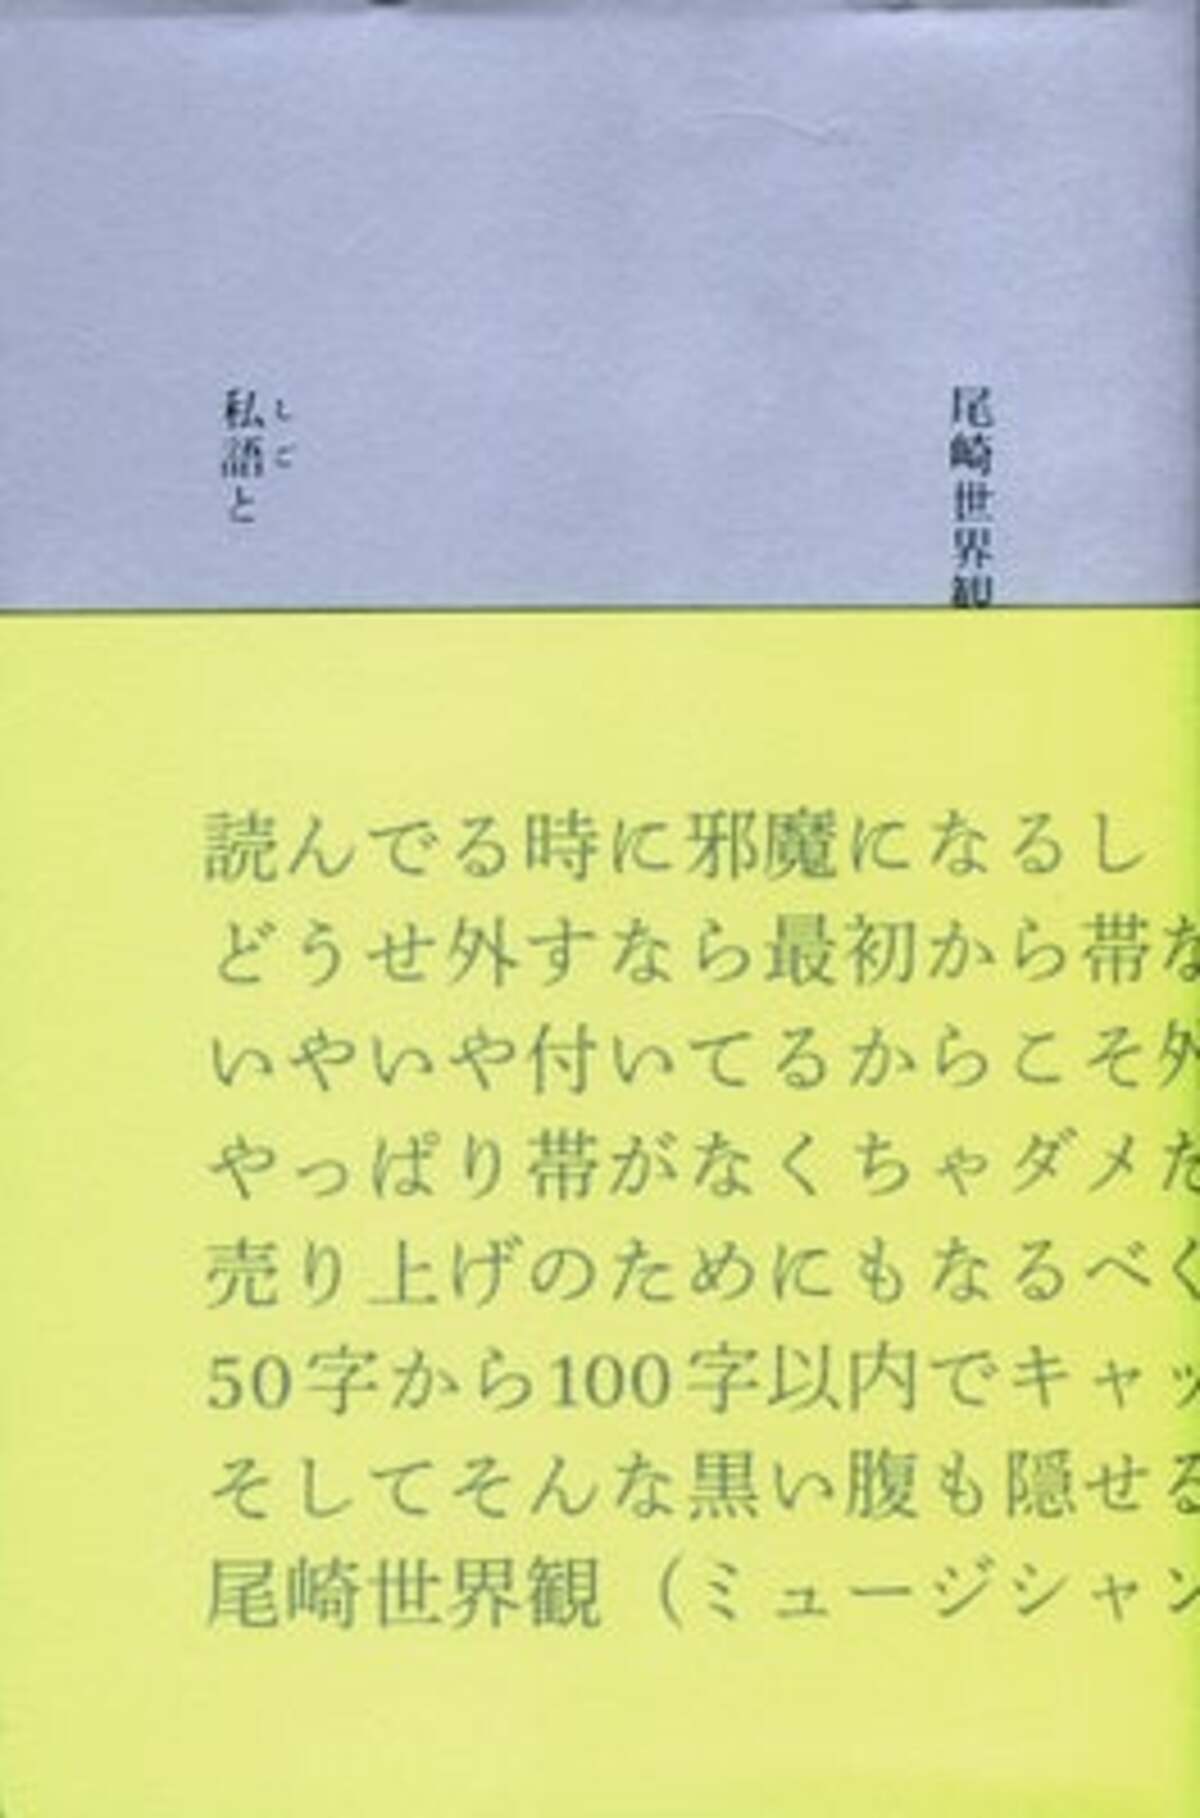 尾崎世界観
私語と
しご
読んでる時に邪魔になるし
どうせ外すなら最初から帯な
いやいや付いてるからこそ外
やっぱり帯がなくちゃダメだ
売り上げのためにもなるべく
50字から100字以内でキャッ
そしてそんな黒い腹も隠せる
尾崎世界観（ミュージシャン